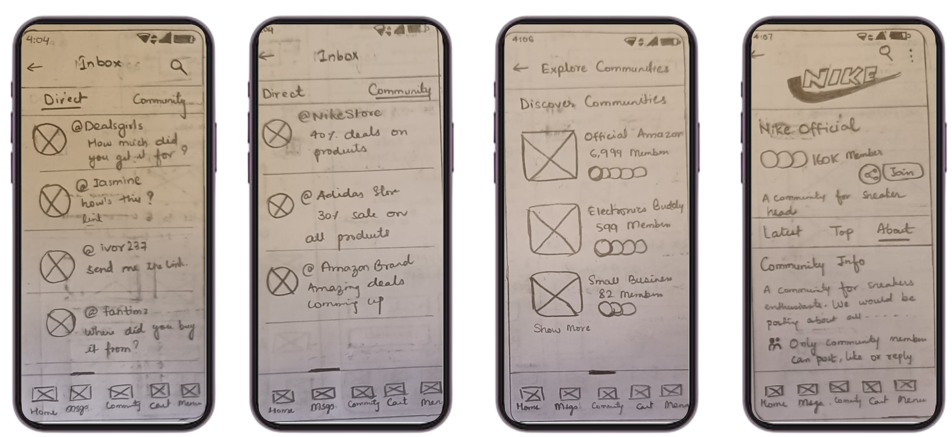 4:04
Inbox
Direct Community
@Dealsgirls
How much did
you get it for?
@Jasmine
how's this?
link
@ivor237
send me the link
@fantima
where did you buy
it from?
Home Msgs Comunity Cart Menu
Inbox
Direct Community
@NikeStore
40% deals on
products
@Adidas Store
30% sale on
all products
@Amazon Brand
Amazing deals
coming up
Home Msgs Comunity Cart Men
4:06
Explore Communities
Discover Communities
Official Amazon
6,999 Members
Electronics Buddy
599 Members
Small Business
82 Members
Show More
Home Msgs Comunity Cart Menu
4:07
NIKE
Nike Official
160K Member
Join
A community for sneaker
heads
Latest Top About
Community Info
A community for sneakers
enthusiasts. We would be
posting about all .....
Only community members
can post, like or reply
Home Msgs Comunity Cart Menu